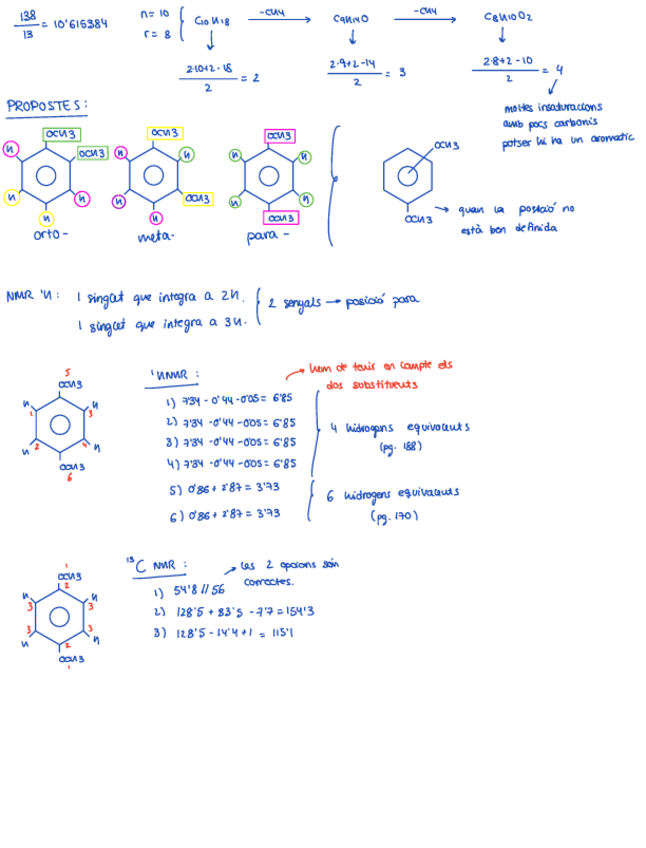 138/13 = 10'615384
n = 10
r = 8
C10H18 -CH4 → C9H14O -CH4 → C8H10O2
2·10+2-18/2 = 2
2·9+2-14/2 = 3
2·8+2-10/2 = 4
moltes insaturacions
amb pocs carbonis
potser hi ha un aromàtic
PROPOSTES:
OCH3
OCH3
H
H
H
H
orto-
OCH3
H
H
OCH3
H
H
meta-
OCH3
H
H
H
H
OCH3
para-
OCH3
OCH3 → quan la posició no
està ben definida
NMR ¹H: 1 singlet que integra a 2H.
1 singlet que integra a 3H.
2 senyals → posició para
5
OCH3
H
H
1
3
2
4
H
H
OCH3
6
¹HNMR:
hem de tenir en compte els
dos substituents
1) 7'34 - 0'44 - 0'05 = 6'85
2) 7'34 - 0'44 - 0'05 = 6'85
3) 7'34 - 0'44 - 0'05 = 6'85
4) 7'34 - 0'44 - 0'05 = 6'85
4 hidrogens equivalents
(pg. 188)
5) 0'86 + 2'87 = 3'73
6) 0'86 + 2'87 = 3'73
6 hidrogens equivalents
(pg. 170)
1
OCH3
2
H
H
3
3
3
3
H
H
2
OCH3
1
¹³C NMR:
les 2 opcions són
correctes.
1) 54'8 // 56
2) 128'5 + 33'5 - 7'7 = 154'3
3) 128'5 - 14'4 + 1 = 115'1